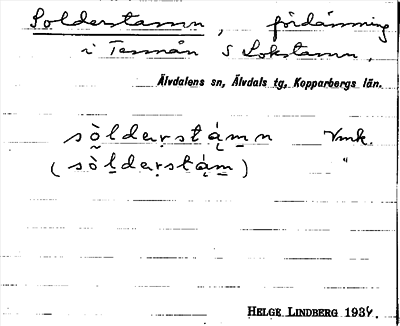 Solderstamn, fördämning
i Tennån S Lokstamn,
Älvdalens sn, Älvdals tg, Kopparbergs län.
sòldeṛstą́m̲n Vmk.
(sòl̲deṛstą́m̲) "
HELGE LINDBERG 1934.